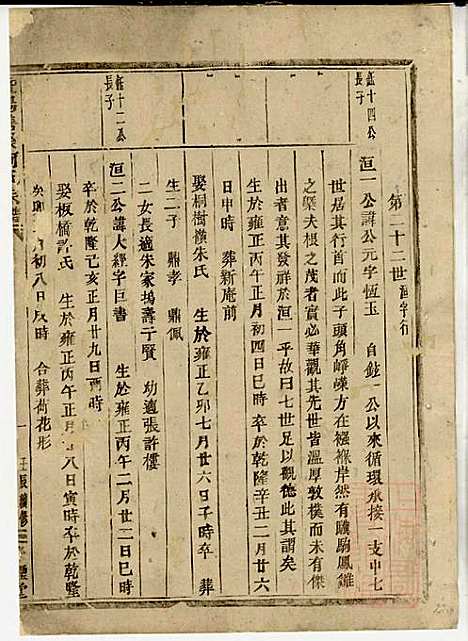 第二十二世洹字行
鈺十四公長子
洹一公諱公元字恆玉 自鉉一公以來循環承接一支中七
世居其行首而此子頭角崢嶸方在襁褓岸然有驥駒鳳雛
之槩夫根之茂者實必華觀其先世皆溫厚敦樸而未有傑
出者意其發祥於洹一乎故曰七世足以觀德此其謂矣
生於雍正丙午正月初四日巳時 卒於乾隆辛丑二月廿六
日申時 葬新庵前
娶桐樹嶺朱氏 生於雍正乙卯七月廿六日子時卒 葬
生二子 鼎孝 鼎佩
二女長適朱家塢壽二賢 幼適張許樓
鈺十二公長子
洹二公諱大經字巨書 生於雍正丙午二月廿二日巳時
卒於乾隆己亥正月廿九日酉時
娶板橋許氏 生於雍正丙午正月 八日寅時卒於乾隆
癸卯 初八日戌時 合葬荷花形